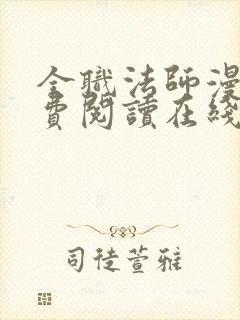 全職法師漫
費閱讀在綫
司徒萱雅